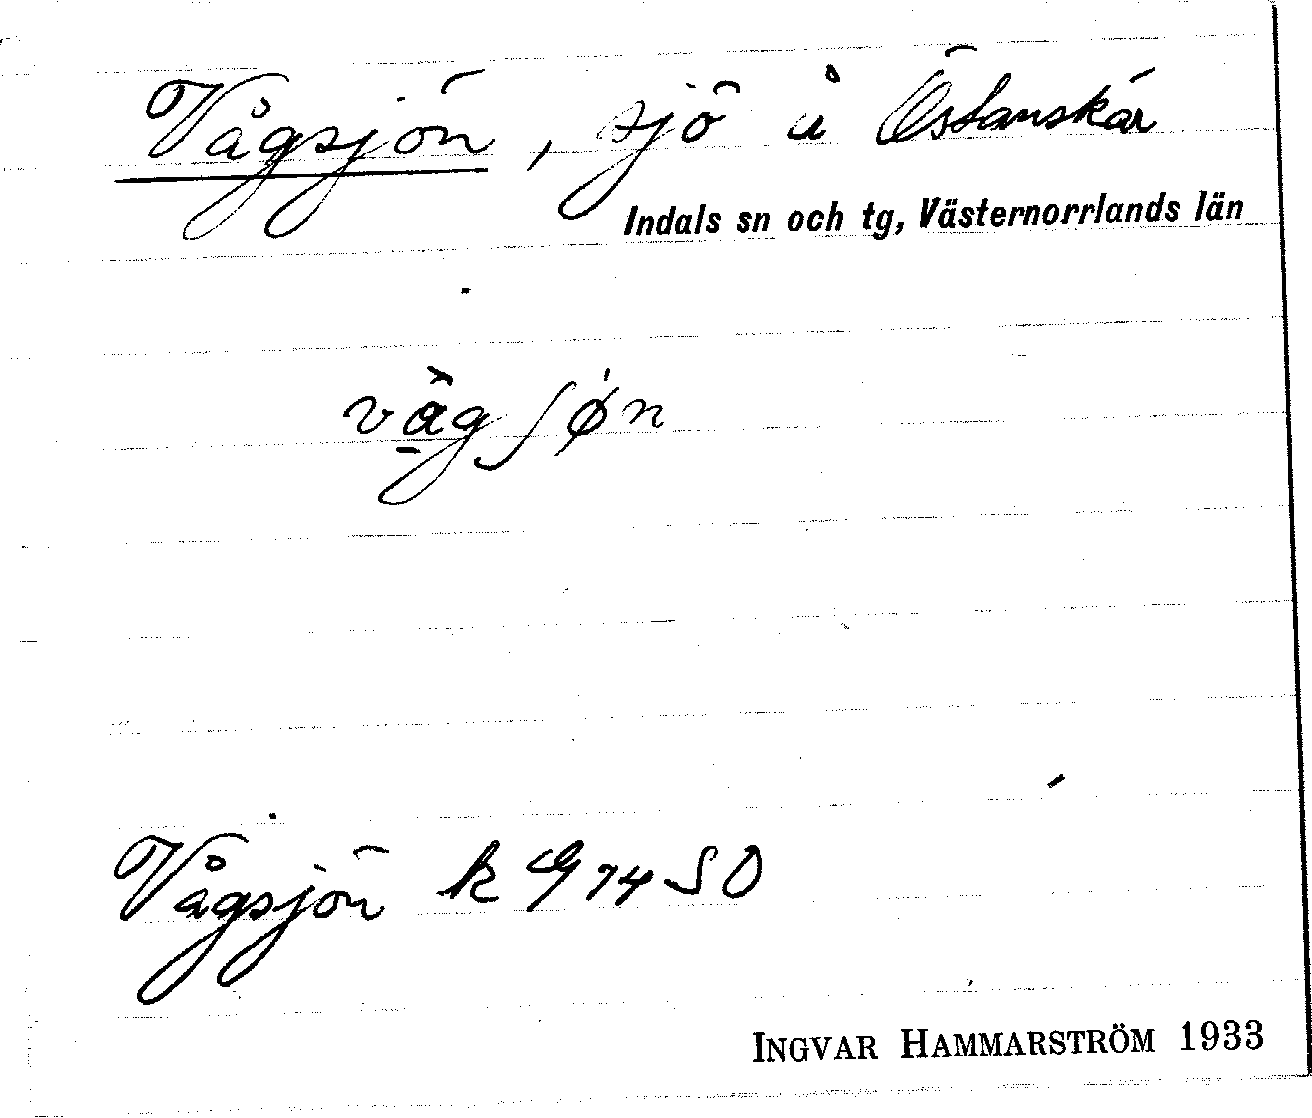 Vågsjön, sjö å Östanskär
Indals sn och tg, Västernorrlands län
vågʃøn
Vågsjön k G 74 SO
INGVAR HAMMARSTRÖM 1933